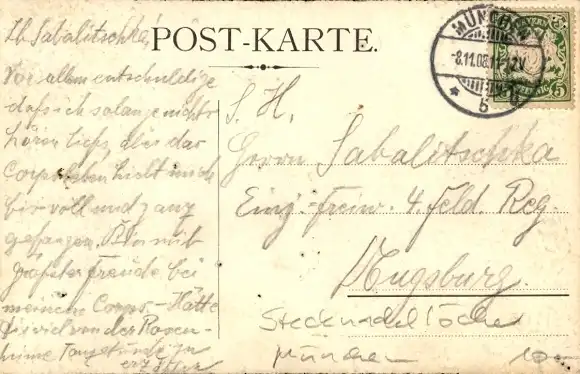 Lb. Sabalitschka!
Vor allem entschuldige
dass ich so lange nichts
hören liess, aber das
Corpsleben hielt mich
bis voll und ganz
gefangen. Bin mit
grösster Freude bei
meinem Corps - Hätte
Dir viel von der Rosen-
Tanzstunde zu
erzählen
POST-KARTE.
MÜNCHEN
8.11.08.11-12V.
5
BAYERN
5
S. H.
Herrn Sabalitschka
Einj.-freiw. 4. Feld. Reg.
Augsburg.
Stecknadellöcher
München
10-